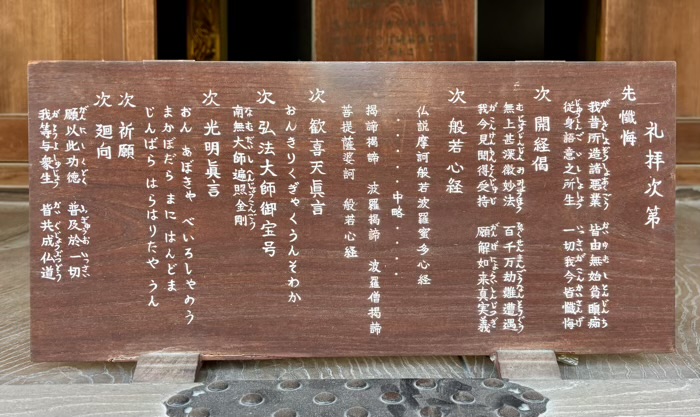 礼拝次第
先 懺悔
我昔所造諸悪業 皆由無始貪瞋痴
従身語意之所生 一切我今皆懺悔
次 開経偈
無上甚深微妙法 百千万劫難遭遇
我今見聞得受持 願解如来真実義
次 般若心経
仏説摩訶般若波羅蜜多心経
・・・・中略・・・・
掲諦掲諦 波羅掲諦 波羅僧掲諦
菩提薩婆訶 般若心経
次 歓喜天眞言
おんきりくぎゃくうんそわか
次 弘法大師御宝号
南無大師遍照金剛
次 光明眞言
おん あぼきゃ べいろしゃのう
まかぼだら まに はんどま
じんばら はらはりたや うん
次 祈願
次 廻向
願以此功徳 普及於一切
我等与衆生 皆共成仏道